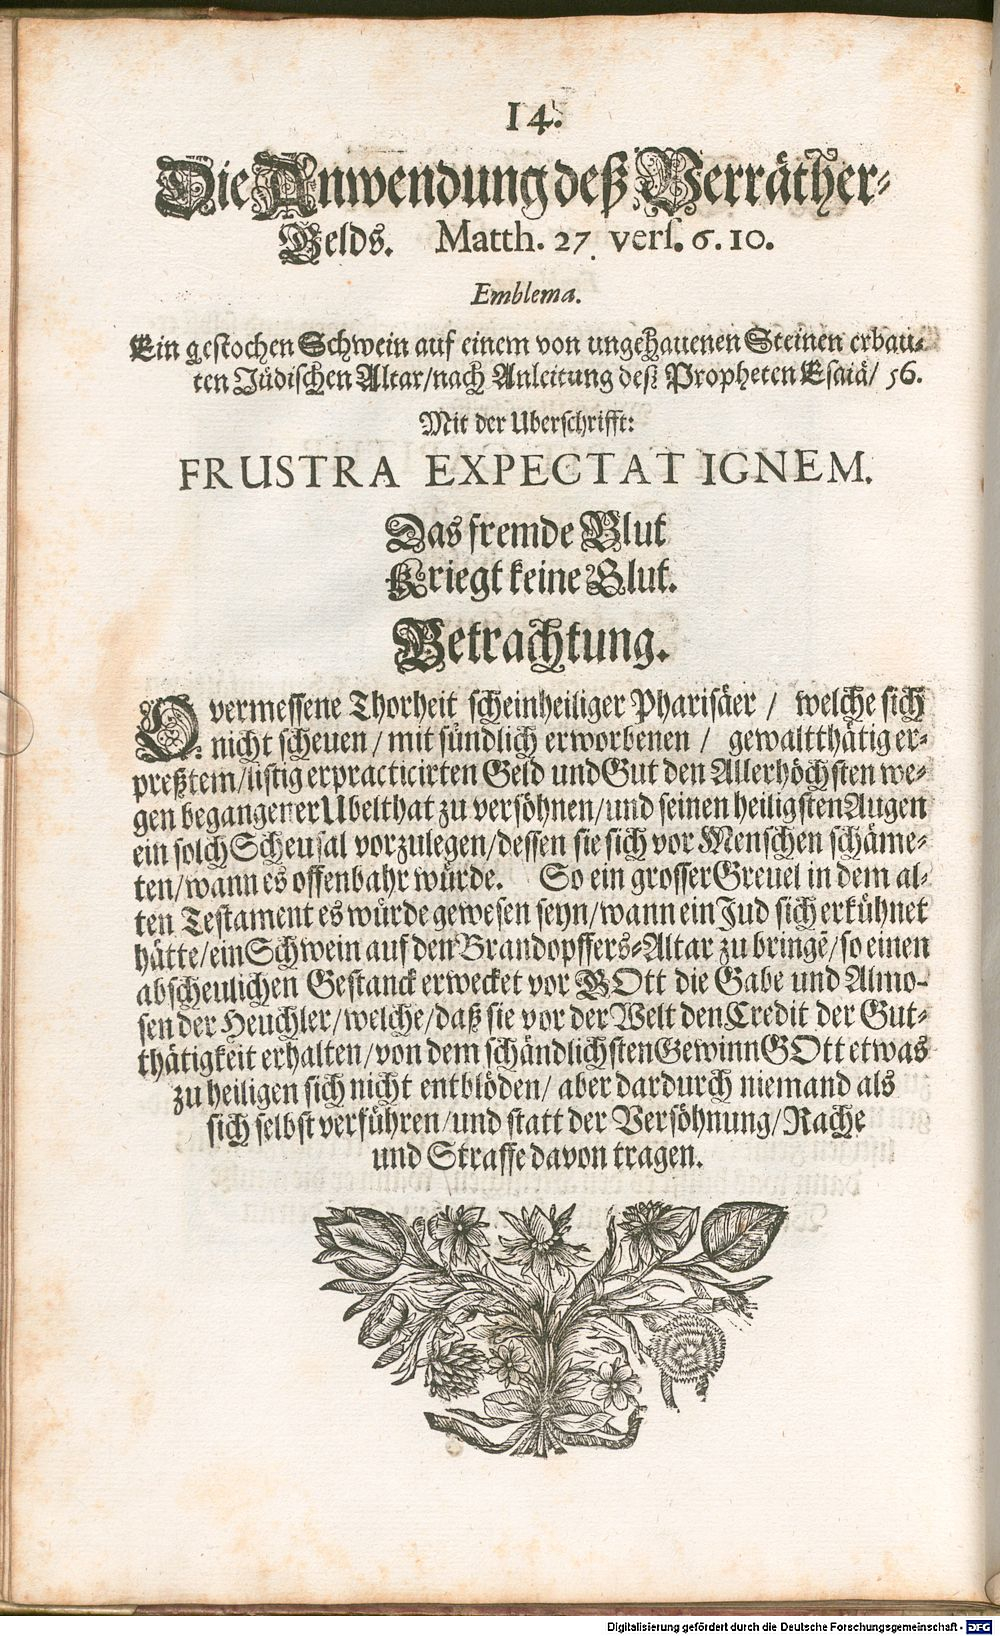 14.
Die Anwendung deß Verräther-
Gelds. Matth. 27. vers. 6. 10.
Emblema.
Ein gestochen Schwein auf einem von ungehauenen Steinen erbau-
ten Jüdischen Altar/ nach Anleitung deß Propheten Esaiä/ 56.
Mit der Uberschrifft:
FRUSTRA EXPECTAT IGNEM.
Das fremde Blut
Kriegt keine Glut.
Betrachtung.
O vermessene Thorheit scheinheiliger Pharisäer / welche sich
nicht scheuen / mit sündlich erworbenen / gewaltthätig er-
preßtem/ listig erpracticirten Geld und Gut den Allerhöchsten we-
gen begangener Ubelthat zu versöhnen/ und seinen heiligsten Augen
ein solch Scheusal vorzulegen/ dessen sie sich vor Menschen schäme-
ten/ wann es offenbahr würde. So ein grosser Greuel in dem al-
ten Testament es würde gewesen seyn/ wann ein Jud sich erkühnet
hätte/ ein Schwein auf den Brandopffers-Altar zu bringē/ so einen
abscheulichen Gestanck erwecket vor GOtt die Gabe und Almo-
sen der Heuchler/ welche/ daß sie vor der Welt den Credit der Gut-
thätigkeit erhalten/ von dem schändlichsten Gewinn GOtt etwas
zu heiligen sich nicht entblöden/ aber dardurch niemand als
sich selbst verführen/ und statt der Versöhnung/ Rache
und Straffe davon tragen.
Digitalisierung gefördert durch die Deutsche Forschungsgemeinschaft - DFG